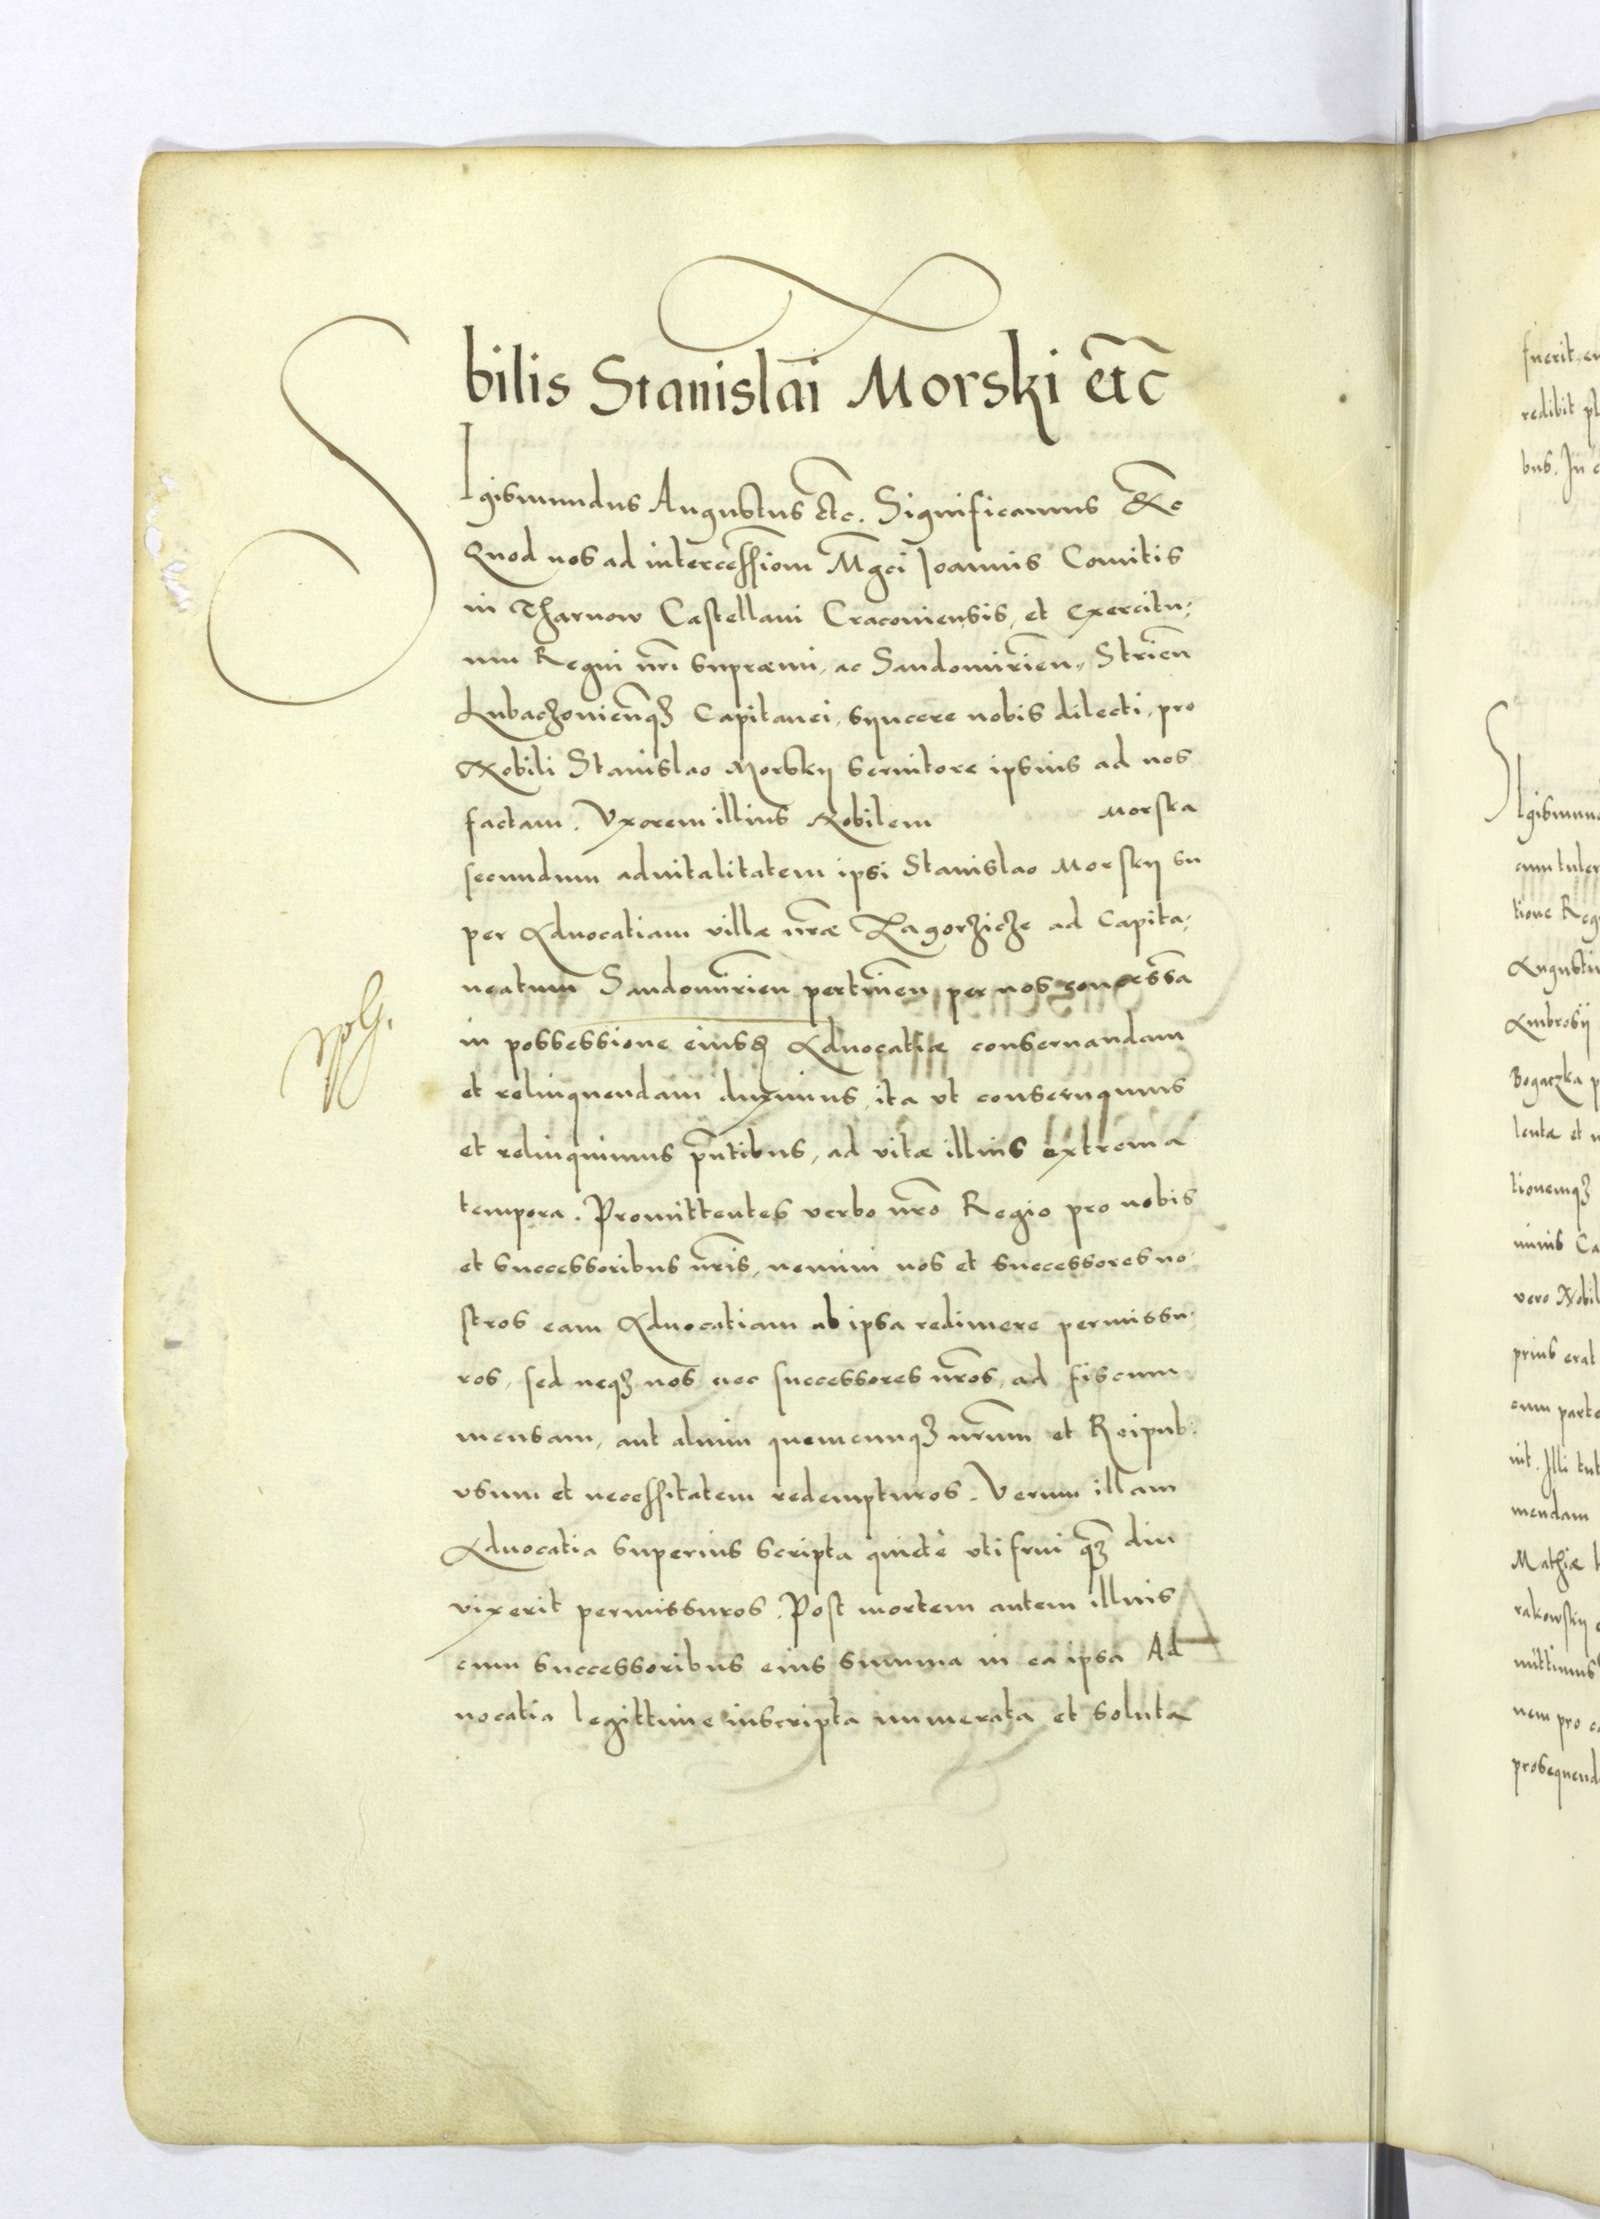 bilis Stanislai Morski etc
Sigismundus Augustus etc. Significamus &c
Quod nos ad intercessiom Mgci Joannis Comitis
in Tharnow Castellani Cracoviensis, et exercitu,
um Regni nri supraemi, ac Sandomirien, Strien
Lubaczovienqз Capitanei, syncere nobis dilecti, pro
Nobili Stanislao Morskij servitore ipsius ad nos
factam. Vxorem illius Nobilem Morska
secundum advitalitatem ipsi Stanislao Morskij su
per Advocatiam villæ nræ Zagorzicze ad Capita,
neatum Sandomirien pertinen, per nos concessa
in possessione eiusd Advocatiæ conservandam
et relinquendam duximus, ita vt conservamus
et relinquimus pntibus, ad vitæ illius extrema
tempora. Promittentes verbo nro Regio pro nobis
et successoribus nris, nemini nos et successores no
stros eam Advocatiam ab ipsa redimere permissu,
ros, sed neqз nos nec successores nros, ad fiscum
mensam, aut alium quemcunqз nrum et Reipub:
vsum et necessitatem redempturos. Verum illam
Advocatia superius scripta quietè vti frui qз diu
vixerit permissuros. Post mortem autem illius
cum successoribus eius summa in ea ipsa Ad
vocatia legittime inscripta numerata et soluta
fuerit,
redibit
bus. In
Sigismund
tione Reg
Augusti
Ambrosij
Bogaczka
lentæ et
tionemqз
vero Nobil
prius erat
cum parte
nit. Illi
mendam
Mathiæ
rakowskij
mittimus
nem pro
prosequend